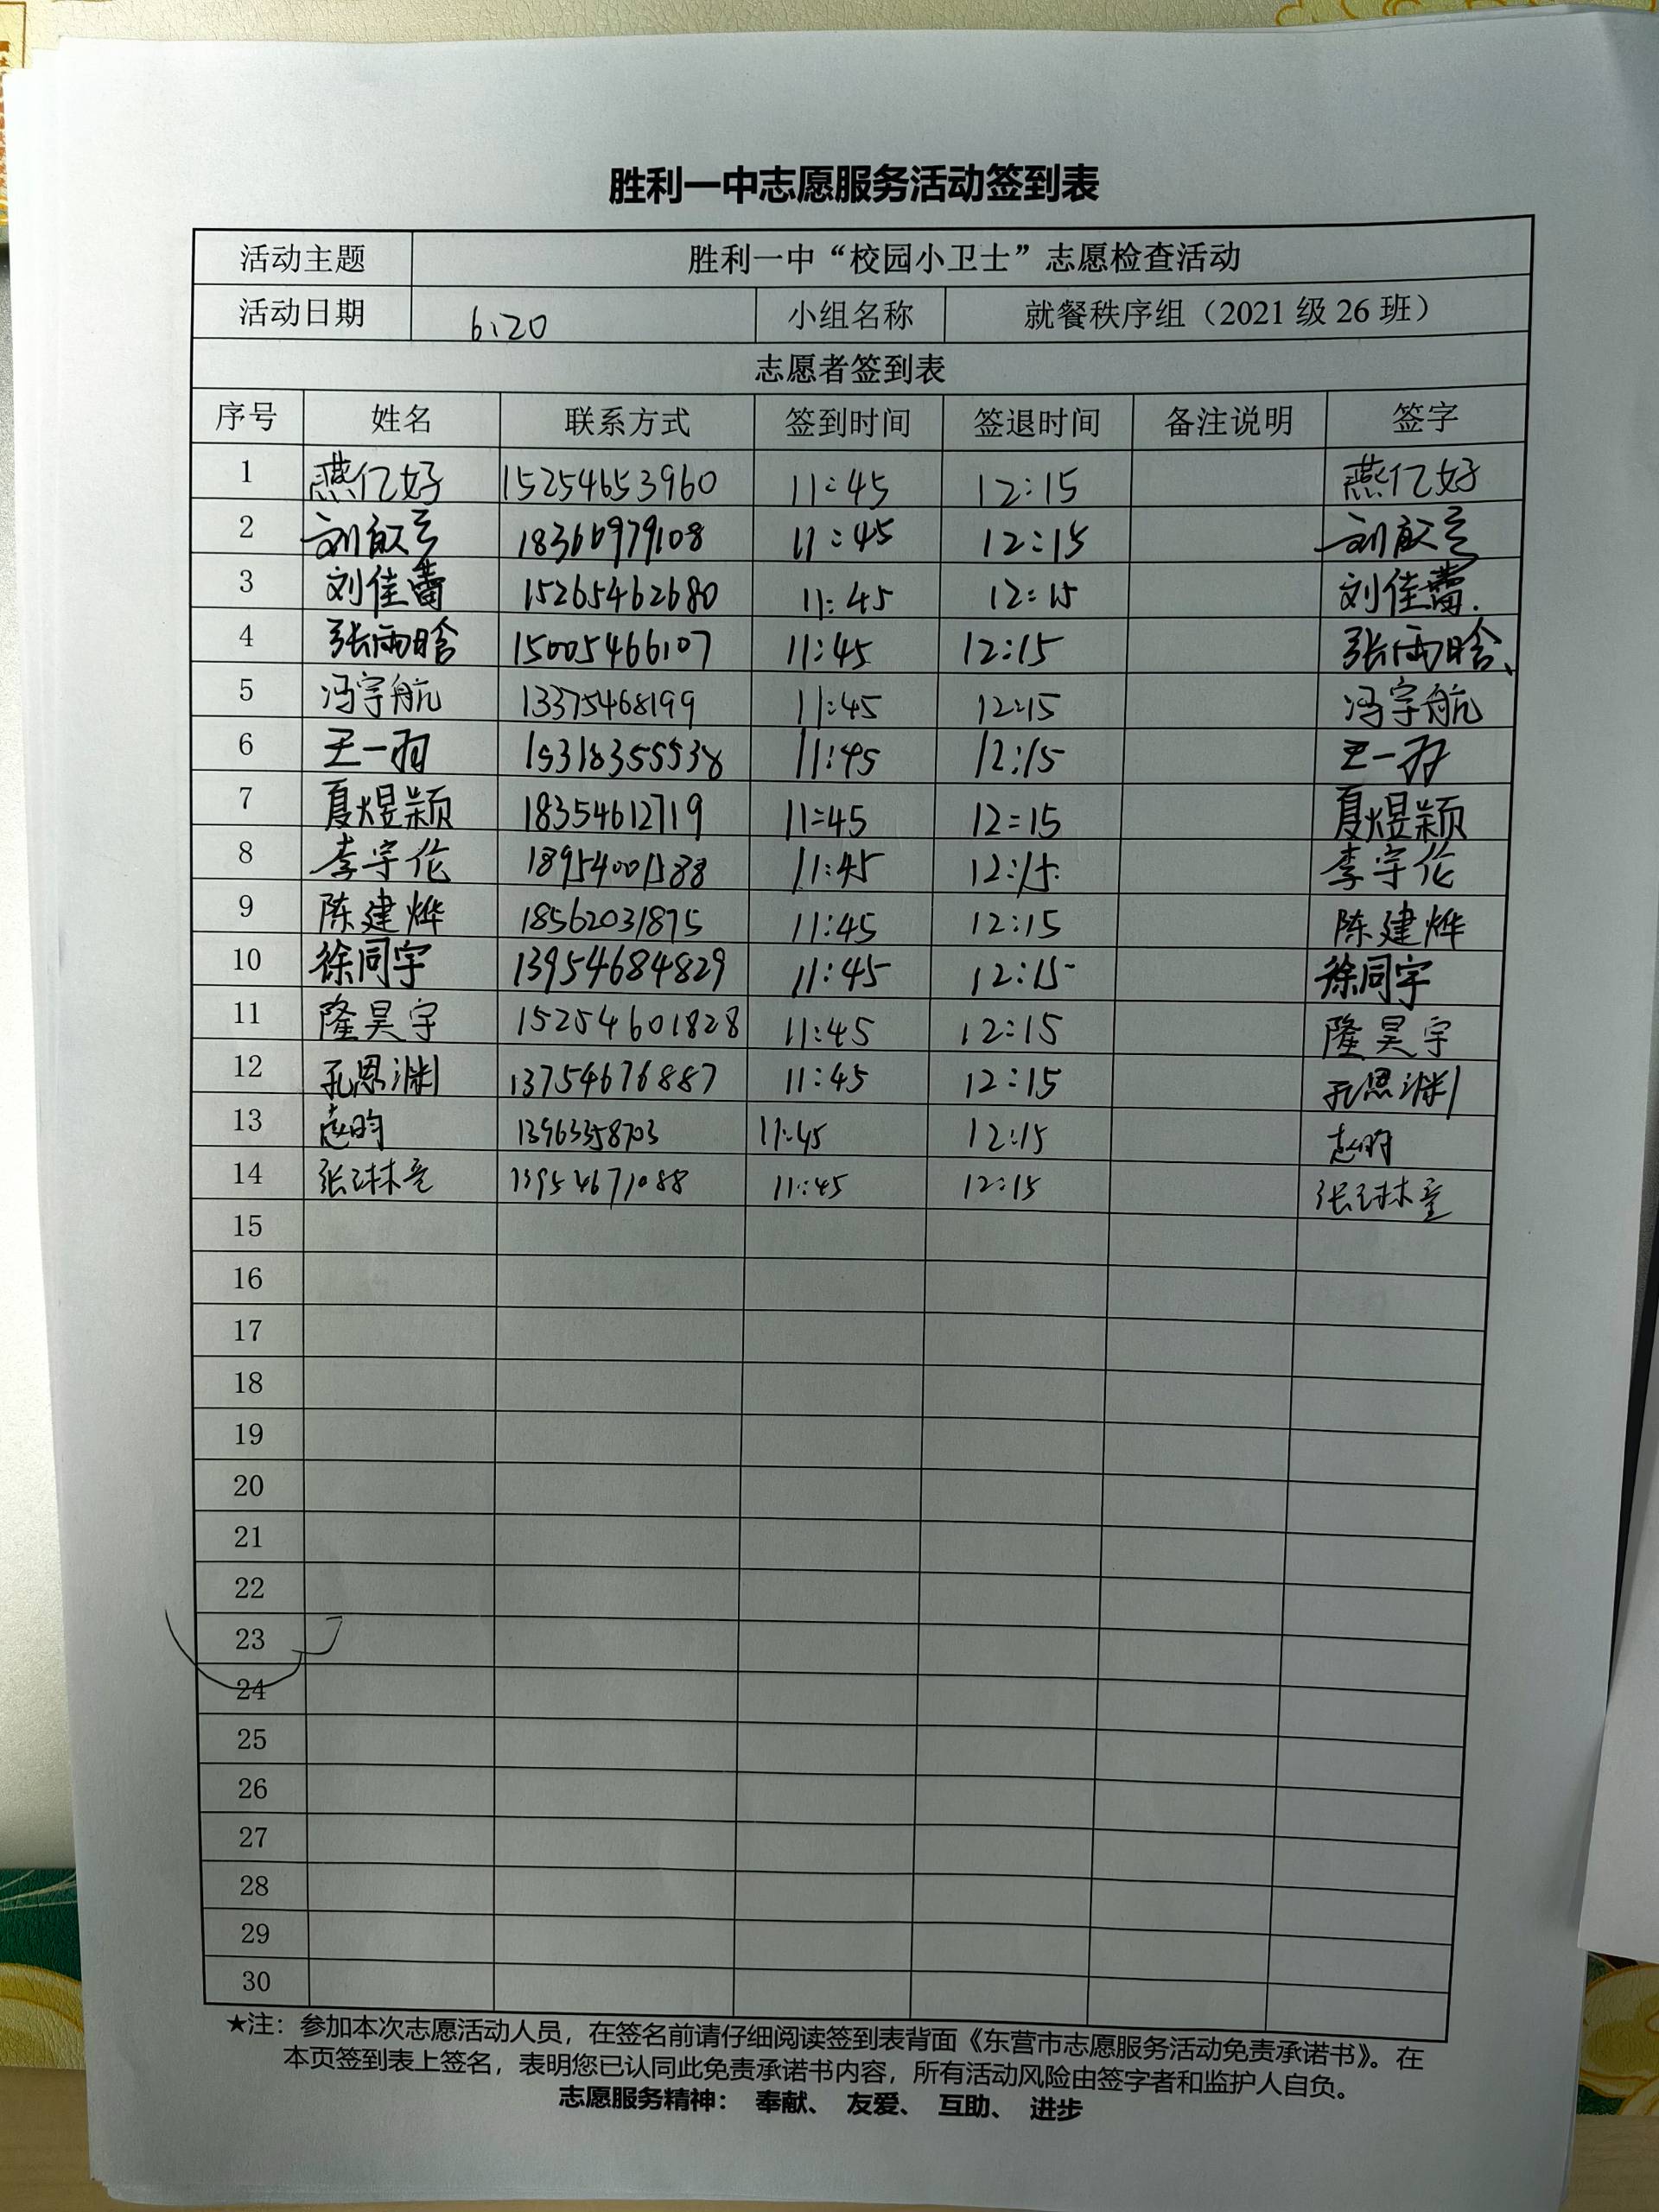 胜利一中志愿服务活动签到表
活动主题 胜利一中“校园小卫士”志愿检查活动
活动日期 6.20 小组名称 就餐秩序组（2021 级 26 班）
志愿者签到表
序号 姓名 联系方式 签到时间 签退时间 备注说明 签字
1 燕亿好 15254653960 11:45 12:15 燕亿好
2 刘 11:45 12:15 刘
3 刘佳蕾 15265462680 11:45 12:15 刘佳蕾.
4 张雨晗 15005466107 11:45 12:15 张雨晗
5 冯宇航 13375468199 11:45 12:15 冯宇航
6 王一羽 15318355538 11:45 12:15 王一羽
7 夏煜颖 18354612719 11:45 12:15 夏煜颖
8 李宇伦 11:45 12:15 李宇伦
9 陈建烨 18562031875 11:45 12:15 陈建烨
10 徐同宇 13954684829 11:45 12:15 徐同宇
11 隆昊宇 15254601828 11:45 12:15 隆昊宇
12 孔恩渊 13754676887 11:45 12:15 孔恩渊
13 13963358703 11:45 12:15
14 张琳 13954671088 11:45 12:15 张琳
15
16
17
18
19
20
21
22
23
24
25
26
27
28
29
30
★注：参加本次志愿活动人员，在签名前请仔细阅读签到表背面《东营市志愿服务活动免责承诺书》。在
本页签到表上签名，表明您已认同此免责承诺书内容，所有活动风险由签字者和监护人自负。
志愿服务精神： 奉献、 友爱、 互助、 进步